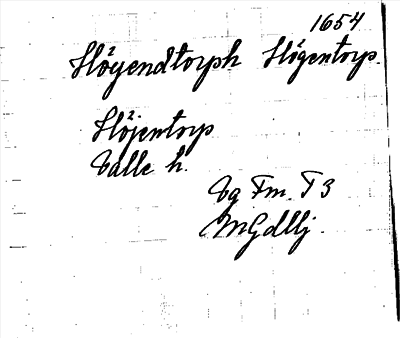 1654
Höyendtorph Högentorp.
Höjentorp
Valle h.
Vg Fm. T 3
MGdlbj.